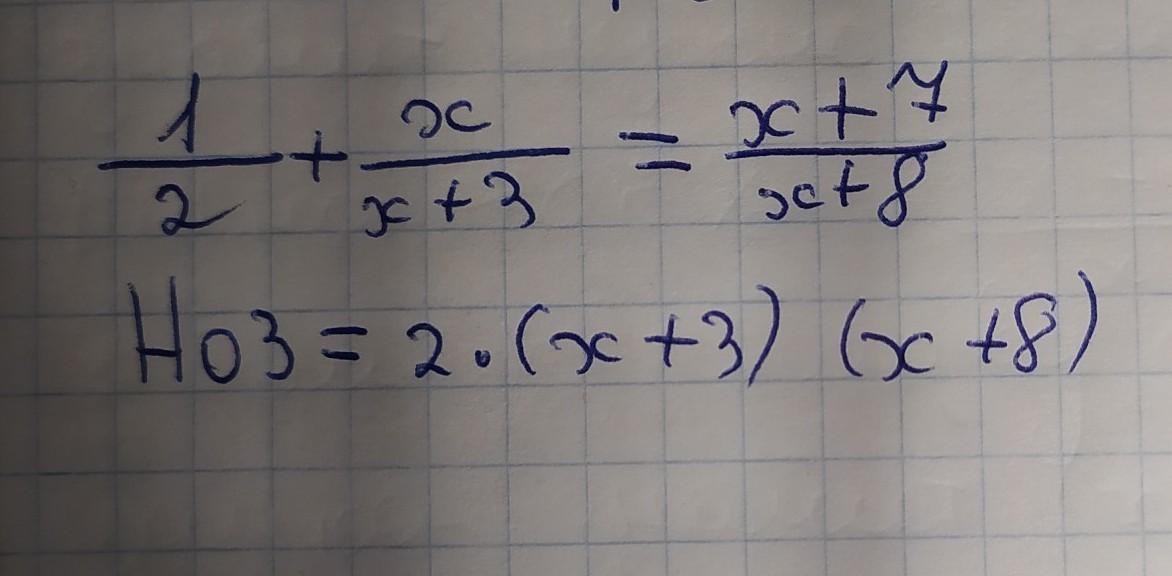 1/2 + x/(x+3) = (x+7)/(x+8)
НОЗ = 2·(x+3) (x+8)